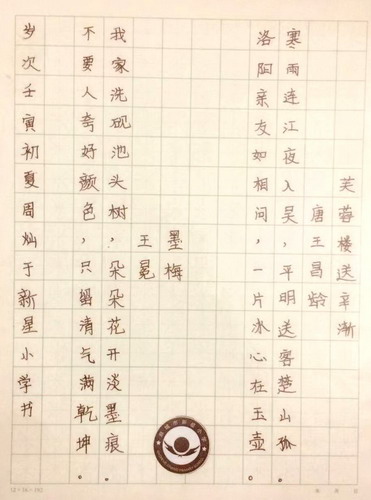 芙蓉楼送辛渐
唐王昌龄
寒雨连江夜入吴，平明送客楚山孤。
洛阳亲友如相问，一片冰心在玉壶。
墨梅
王冕
我家洗砚池头树，朵朵花开淡墨痕。
不要人夸好颜色，只留清气满乾坤。
岁次壬寅初夏周灿于新星小学书